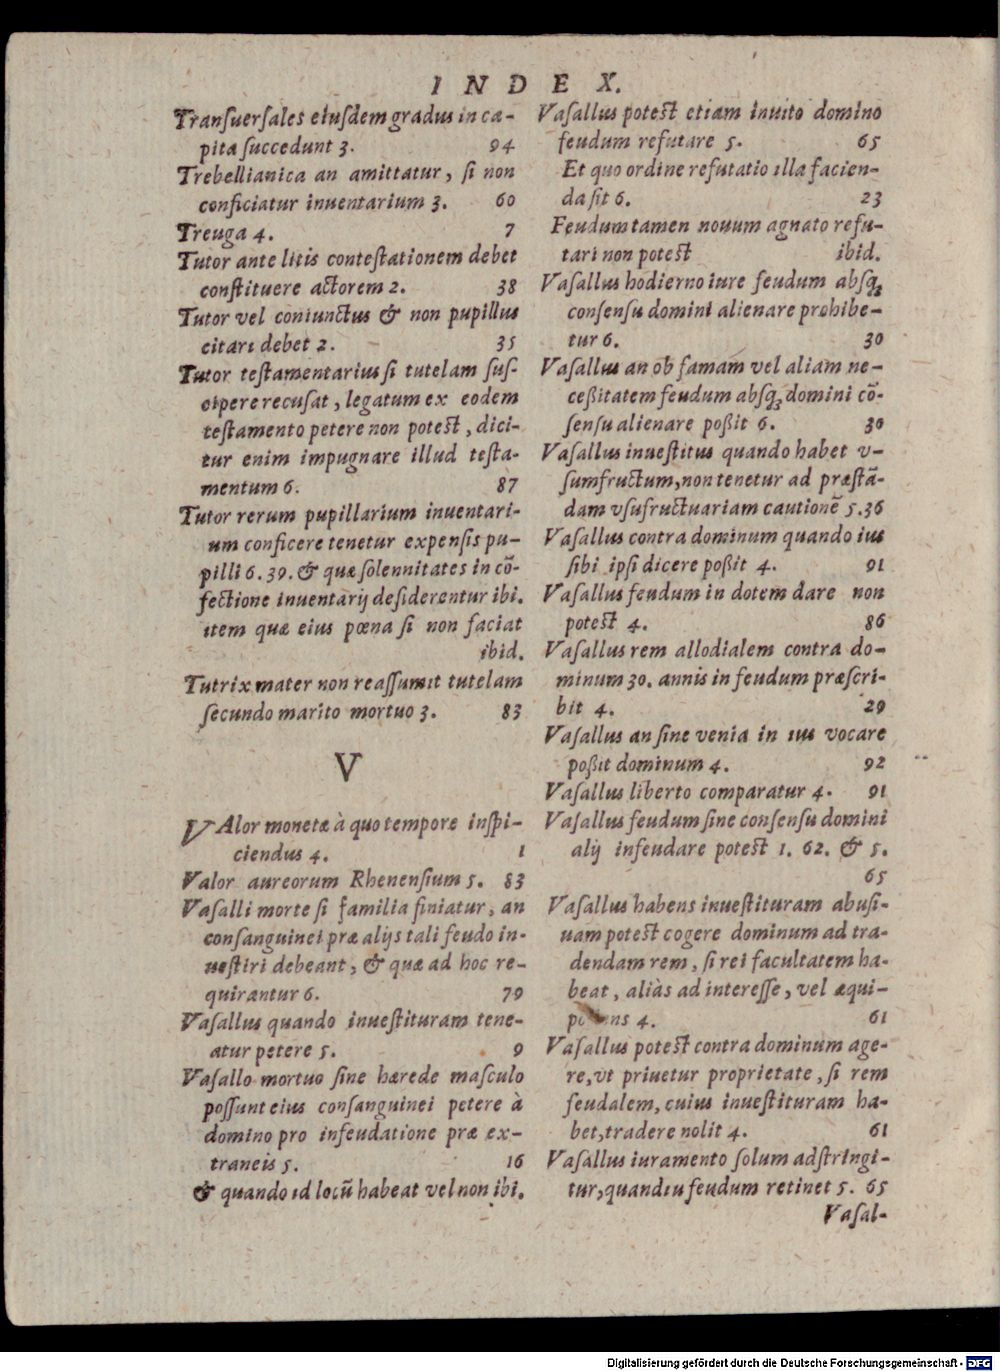 INDEX.
Tranſuerſales eiuſdem gradus in ca-
pita ſuccedunt 3. 94
Trebellianica an amittatur, ſi non
conficiatur inuentarium 3. 60
Treuga 4. 7
Tutor ante litis conteſtationem debet
conſtituere actorem 2. 38
Tutor vel coniunctus & non pupillus
citari debet 2. 35
Tutor teſtamentarius ſi tutelam ſuſ-
cipere recuſat, legatum ex eodem
teſtamento petere non poteſt, dici-
tur enim impugnare illud teſta-
mentum 6. 87
Tutor rerum pupillarium inuentari-
um conficere tenetur expenſis pu-
pilli 6. 39. & quæ ſolennitates in cõ-
fectione inuentarij deſiderentur ibi.
item quæ eius pœna ſi non faciat
ibid.
Tutrix mater non reaſſumit tutelam
ſecundo marito mortuo 3. 83
V
VAlor monetæ à quo tempore inſpi-
ciendus 4. 1
Valor aureorum Rhenenſium 5. 83
Vaſalli morte ſi familia finiatur, an
conſanguinei præ alijs tali feudo in-
ueſtiri debeant, & quæ ad hoc re-
quirantur 6. 79
Vaſallus quando inueſtituram tene-
atur petere 5. 9
Vaſallo mortuo ſine hærede maſculo
poſſunt eius conſanguinei petere à
domino pro infeudatione præ ex-
traneis 5. 16
& quando id locũ habeat vel non ibi.
Vaſallus poteſt etiam inuito domino
feudum refutare 5. 65
Et quo ordine refutatio illa facien-
da ſit 6. 23
Feudum tamen nouum agnato refu-
tari non poteſt ibid.
Vaſallus hodierno iure feudum abſq;
conſenſu domini alienare prohibe-
tur 6. 30
Vaſallus an ob famam vel aliam ne-
ceßitatem feudum abſq; domini cõ-
ſenſu alienare poßit 6. 30
Vaſallus inueſtitus quando habet v-
ſumfructum, non tenetur ad præſtã-
dam vſufructuariam cautionẽ 5. 36
Vaſallus contra dominum quando ius
ſibi ipſi dicere poßit 4. 91
Vaſallus feudum in dotem dare non
poteſt 4. 86
Vaſallus rem allodialem contra do-
minum 30. annis in feudum præſcri-
bit 4. 29
Vaſallus an ſine venia in ius vocare
poßit dominum 4. 92
Vaſallus liberto comparatur 4. 91
Vaſallus feudum ſine conſenſu domini
alij infeudare poteſt 1. 62. & 5.
65
Vaſallus habens inueſtituram abuſi-
uam poteſt cogere dominum ad tra-
dendam rem, ſi rei facultatem ha-
beat, aliàs ad intereſſe, vel æqui-
4. 61
Vaſallus poteſt contra dominum age-
re, vt priuetur proprietate, ſi rem
feudalem, cuius inueſtituram ha-
bet, tradere nolit 4. 61
Vaſallus iuramento ſolum adſtringi-
tur, quandiu feudum retinet 5. 65
Vaſal-
Digitalisierung gefördert durch die Deutsche Forschungsgemeinschaft - DFG